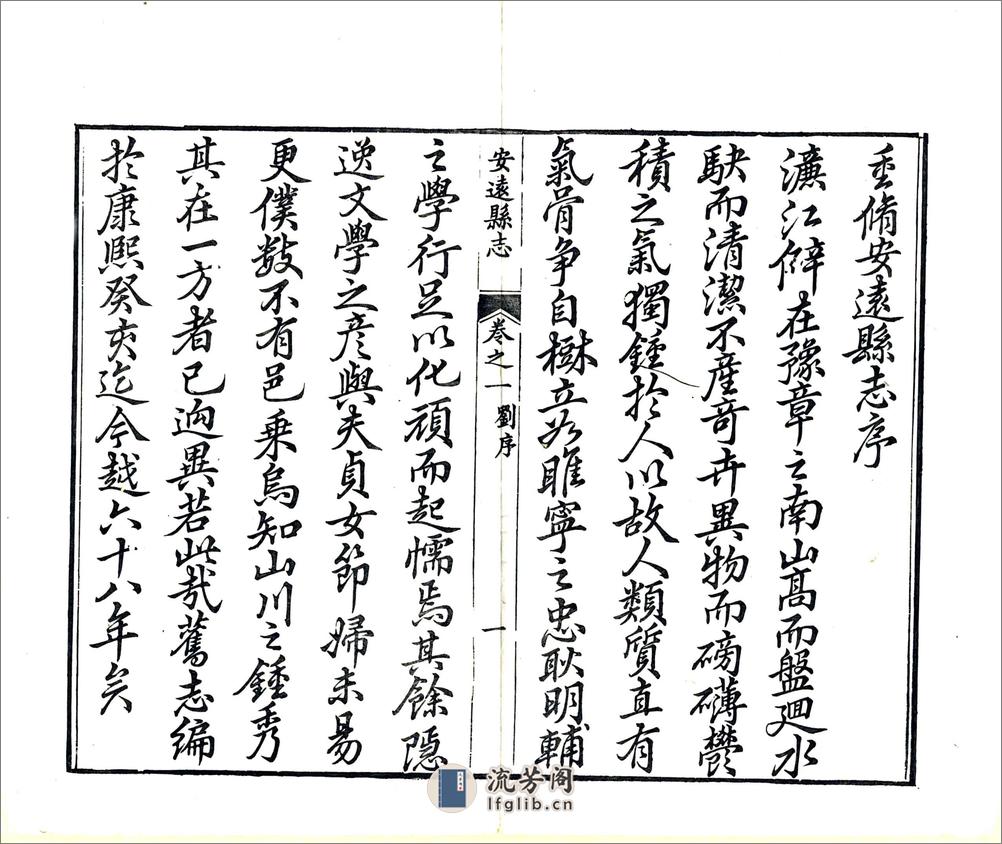 重脩安遠縣志序
濂江僻在豫章之南山高而盤迴水
駃而清潔不產奇卉異物而磅礴鬱
積之氣獨鍾於人以故人類質直有
氣骨爭自樹立如睢寧之忠耿明輔
安遠縣志 卷之一 劉序 一
之學行足以化頑而起懦焉其餘隱
逸文學之彥與夫貞女節婦未易
更僕數不有邑乘烏知山川之鍾秀
其在一方者已迥異若此哉舊志編
於康熙癸亥迄今越六十八年矣
流芳阁
lfglib.cn